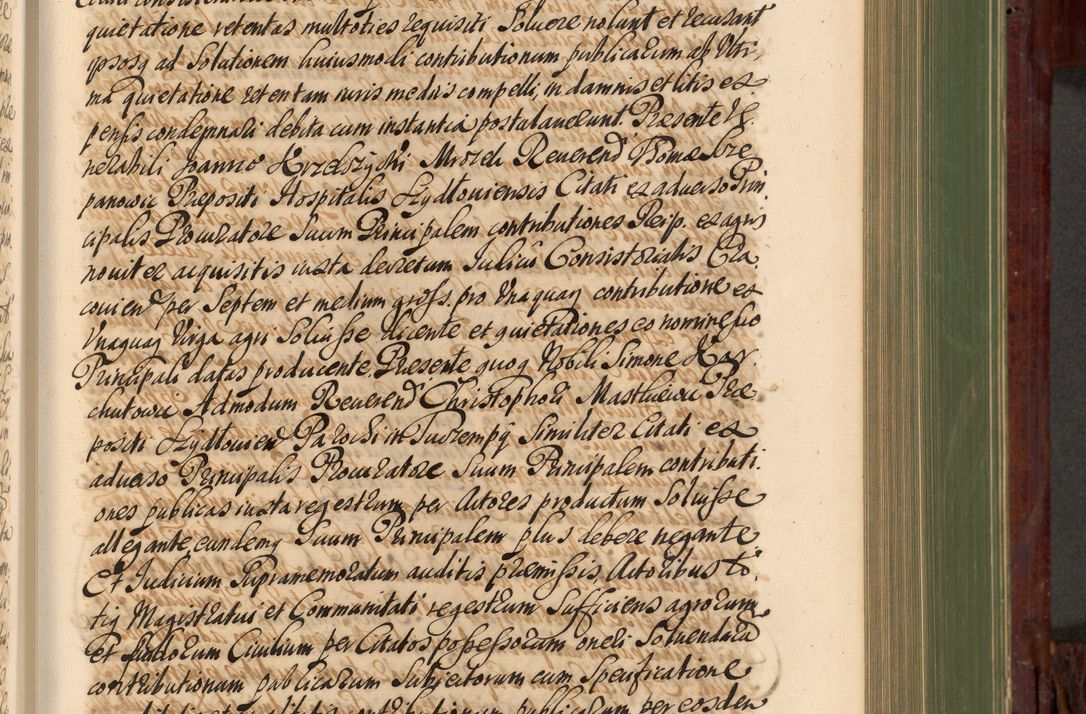 quietatione retentas multoties requisiti Soluere nolunt et recusant
ipsosq ad Solutionem huiusmodi contributionum publicarum ab Vlti,
ma quietatione retentam iuris mediis compelli, in damnis et litis ex,
pensis condemnari debita cum instantia postulauerunt. Præsente Ve,
nerabili Joanne Mrozek Reuerend Thomæ Szcze
panowic Præpositi Hospitalis Zydlouiensis Citati ex aduerso Prin
cipalis Procuratore Suum Principalem contributiones Reip. ex agris
nouiter acquisitis iuxta decretum Iudicii Consistorialis Cra,
couien per Septem et medium gross. pro Vnaquaq contributione ex
Vnaquaq Virga agri Soluisse dicente et quietationes eo nomine suo
Principali datas producente, Præsente quoq Nobili Simone
chutowic Admodum Reuerend Christophori Præ
positi Zydlouien Parochi in Similiter Citati ex
aduerso Principalis Procuratore Suum Principalem contributi,
ones publicas iuxta regestrum per Actores productum Soluisse
allegante, eundemq Suum Principalem plus debere negante
Et Iudicium Supramemoratum auditis præmissis, Actoribus to,
tiq Magistratui et Communitati regestrum Sufficiens agrorum
et fundorum Ciuilium per Citatos possessorum oneri Soluendarū
contributionum publicarum Subiectorum cum Specificatione
contributionum publicarum per eosdem